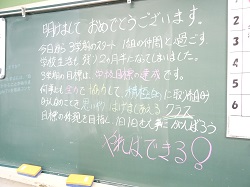 明けまして おめでとうございます。
今日から3学期のスタート 1組の仲間と過ごす
学校生活も 残り2カ月半となってしまいました。
3学期の目標は、学級目標の達成です。
何事にも 全力で 協力して、積極的に 取り組め
る人のことを 思いやり はげまし合える クラス
目標の 実現を 目指し 1日1日を 大事に がんばろう
やればできる!
1
2
3
4
5
6